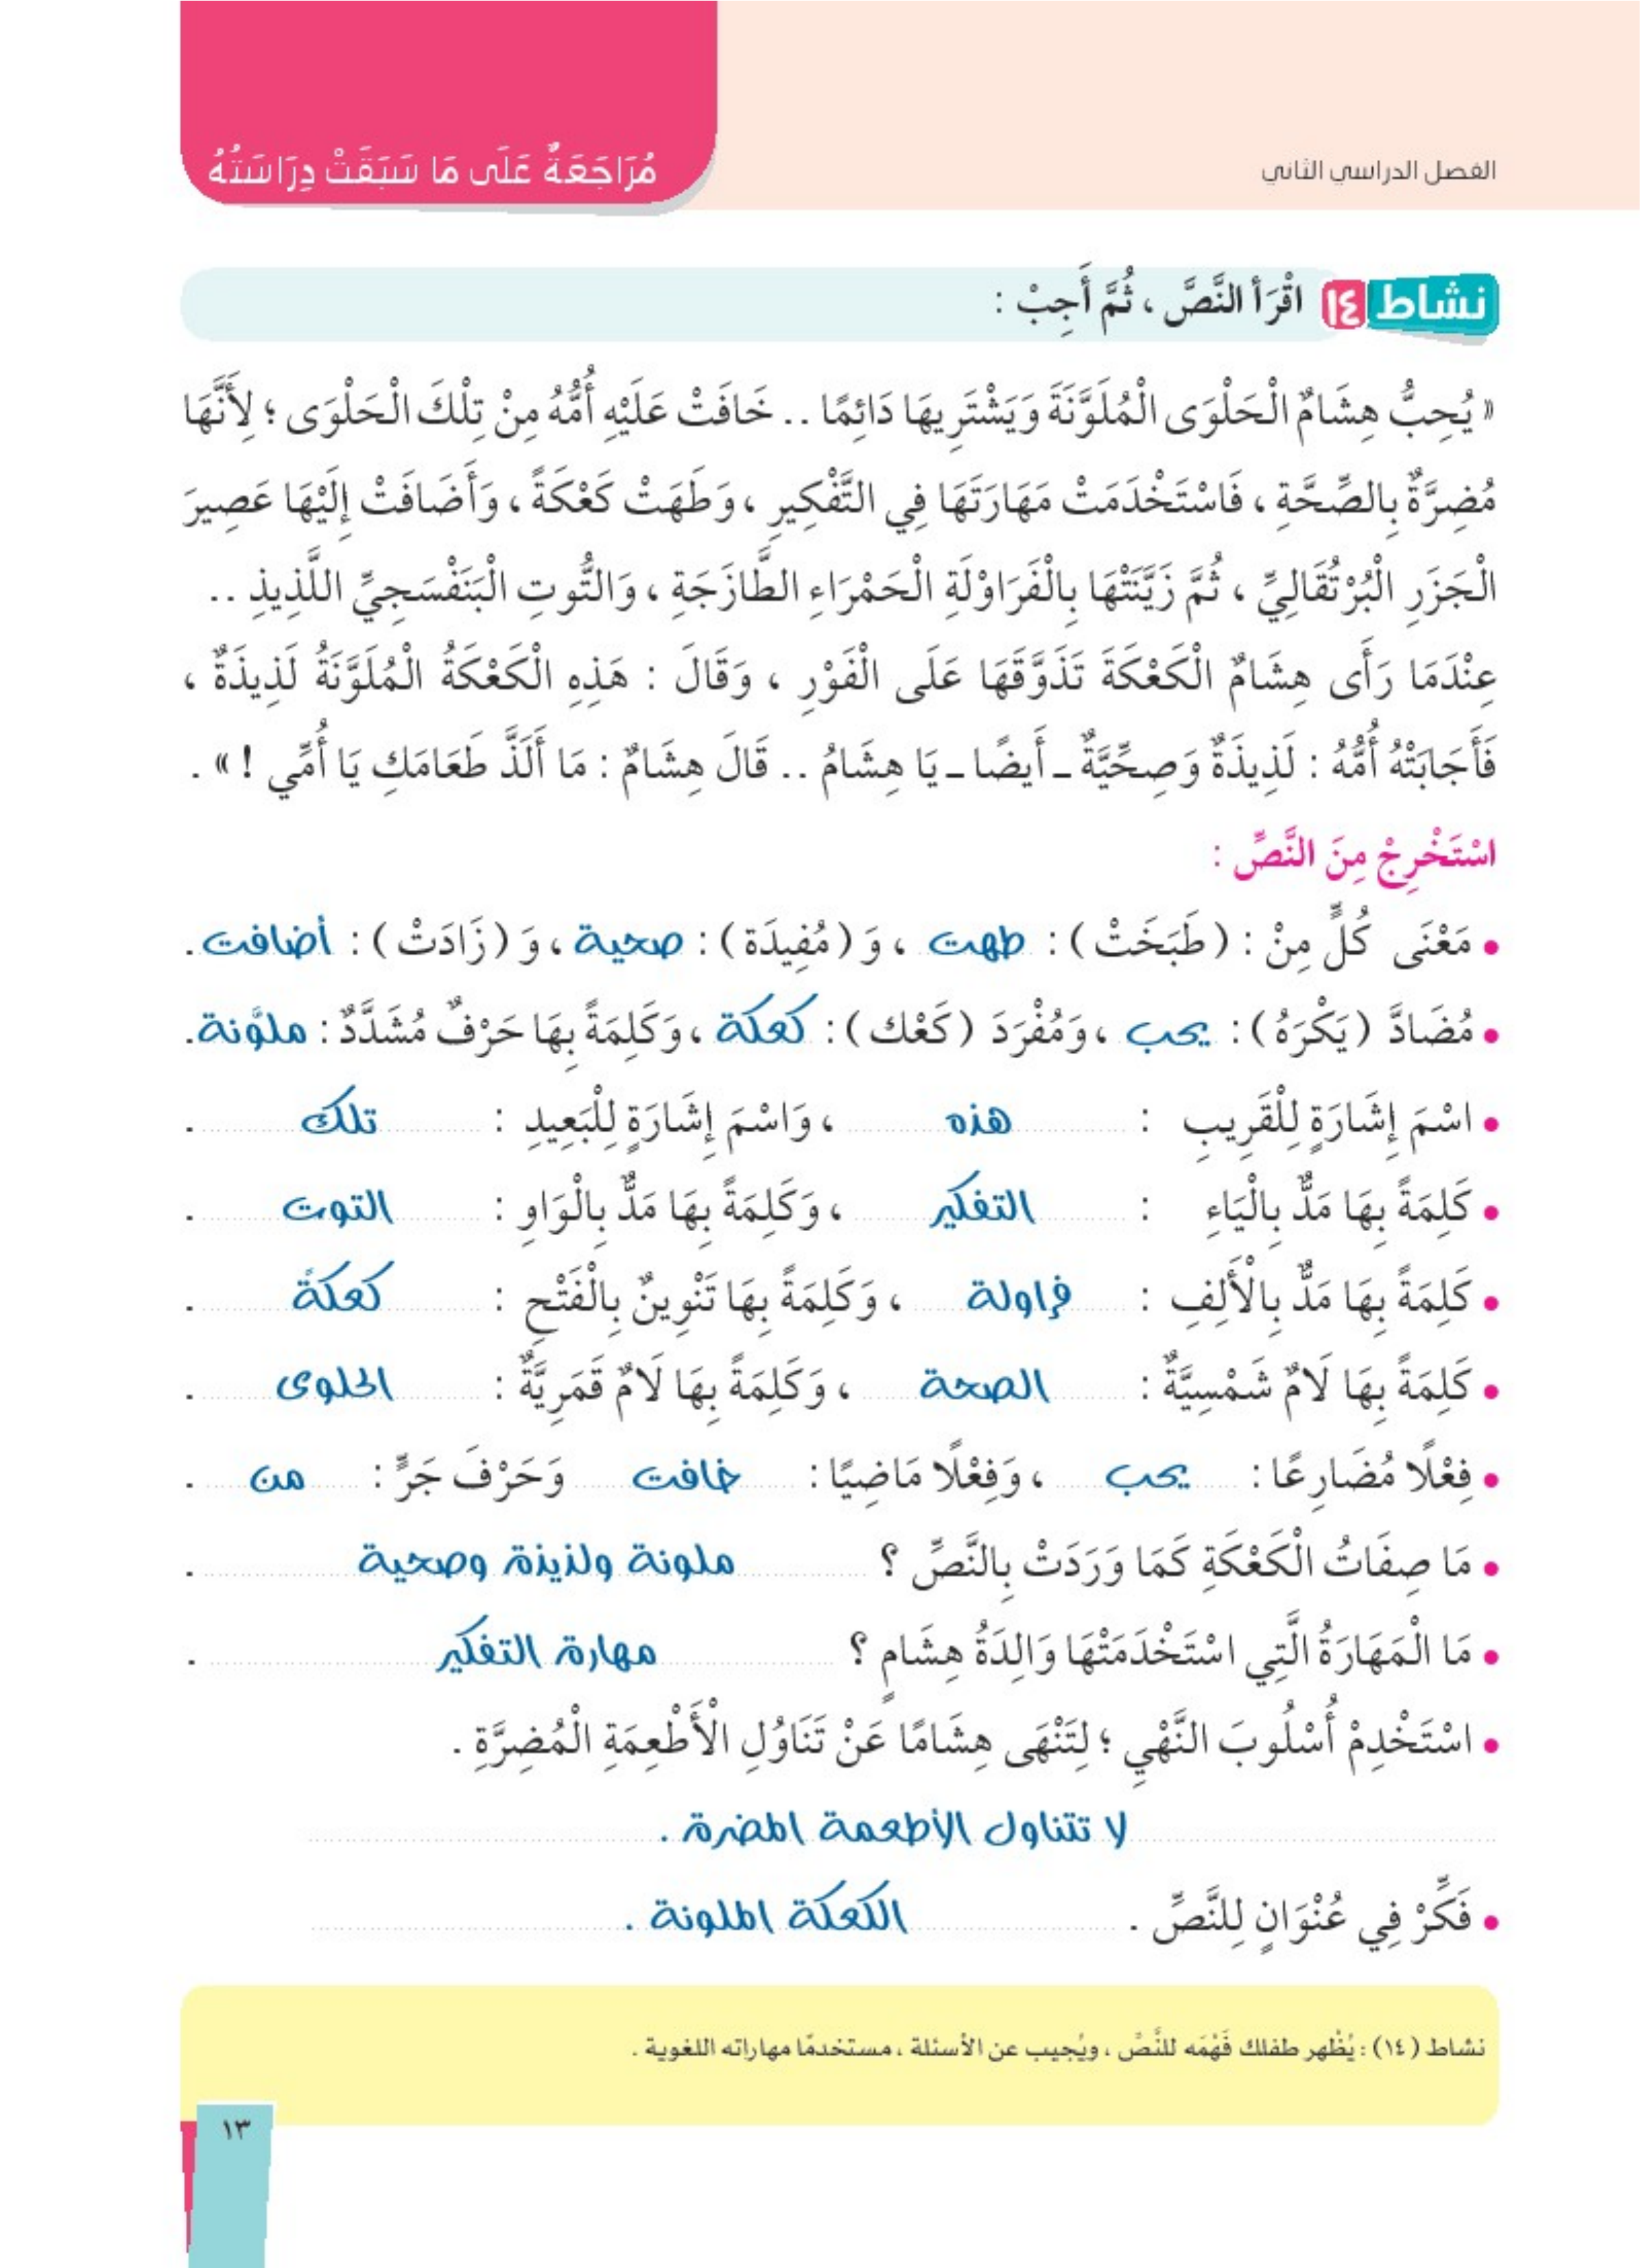 الفصل الدراسي الثاني
مُرَاجَعَةٌ عَلَى مَا سَبَقَتْ دِرَاسَتُهُ
نشاط ١٤ اقْرَأ النَّصَّ ، ثُمَّ أَجِبْ :
« يُحِبُّ هِشَامٌ الْحَلْوَى الْمُلَوَّنَةَ وَيَشْتَرِيهَا دَائِمًا .. خَافَتْ عَلَيْهِ أُمُّهُ مِنْ تِلْكَ الْحَلْوَى ؛ لِأَنَّهَا
مُضِرَّةٌ بِالصِّحَّةِ ، فَاسْتَخْدَمَتْ مَهَارَتَهَا فِي التَّفْكِيرِ ، وَطَهَتْ كَعْكَةً ، وَأَضَافَتْ إِلَيْهَا عَصِيرَ
الْجَزَرِ الْبُرْتُقَالِيِّ ، ثُمَّ زَيَّنَتْهَا بِالْفَرَاوْلَةِ الْحَمْرَاءِ الطَّازَجَةِ ، وَالتُّوتِ الْبَنَفْسَجِيِّ اللَّذِيذِ ..
عِنْدَمَا رَأَى هِشَامٌ الْكَعْكَةَ تَذَوَّقَهَا عَلَى الْفَوْرِ ، وَقَالَ : هَذِهِ الْكَعْكَةُ الْمُلَوَّنَةُ لَذِيذَةٌ ،
فَأَجَابَتْهُ أُمُّهُ : لَذِيذَةٌ وَصِحِّيَّةٌ ـ أَيضًا ـ يَا هِشَامُ .. قَالَ هِشَامٌ : مَا أَلَذَّ طَعَامَكِ يَا أُمِّي ! » .
اسْتَخْرِجْ مِنَ النَّصِّ :
• مَعْنَى كُلٍّ مِنْ : (طَبَخَتْ) : طهت ، وَ (مُفِيدَة) : صحية ، وَ (زَادَتْ) : أضافت .
• مُضَادَّ (يَكْرَهُ) : يحب ، وَمُفْرَدَ (كَعْك) : كعكة ، وَكَلِمَةً بِهَا حَرْفٌ مُشَدَّدٌ : ملوَّنة .
• اسْمَ إِشَارَةٍ لِلْقَرِيبِ : هذه ، وَاسْمَ إِشَارَةٍ لِلْبَعِيدِ : تلك .
• كَلِمَةً بِهَا مَدٌّ بِالْيَاءِ : التفكير ، وَكَلِمَةً بِهَا مَدٌّ بِالْوَاوِ : التوت .
• كَلِمَةً بِهَا مَدٌّ بِالْأَلِفِ : فراولة ، وَكَلِمَةً بِهَا تَنْوِينٌ بِالْفَتْحِ : كعكةً .
• كَلِمَةً بِهَا لَامٌ شَمْسِيَّةٌ : الصحة ، وَكَلِمَةً بِهَا لَامٌ قَمَرِيَّةٌ : الحلوى .
• فِعْلًا مُضَارِعًا : يحب ، وَفِعْلًا مَاضِيًا : خافت وَحَرْفَ جَرٍّ : من .
• مَا صِفَاتُ الْكَعْكَةِ كَمَا وَرَدَتْ بِالنَّصِّ ؟ ملونة ولذيذة وصحية .
• مَا الْمَهَارَةُ الَّتِي اسْتَخْدَمَتْهَا وَالِدَةُ هِشَامٍ ؟ مهارة التفكير .
• اسْتَخْدِمْ أُسْلُوبَ النَّهْيِ ؛ لِتَنْهَى هِشَامًا عَنْ تَنَاوُلِ الْأَطْعِمَةِ الْمُضِرَّةِ .
لا تتناول الأطعمة المضرة .
• فَكِّرْ فِي عُنْوَانٍ لِلنَّصِّ . الكعكة الملونة .
نشاط (١٤) : يُظْهر طفلك فَهْمَه للنَّصِّ ، ويُجيب عن الأسئلة ، مستخدمًا مهاراته اللغوية .
١٣